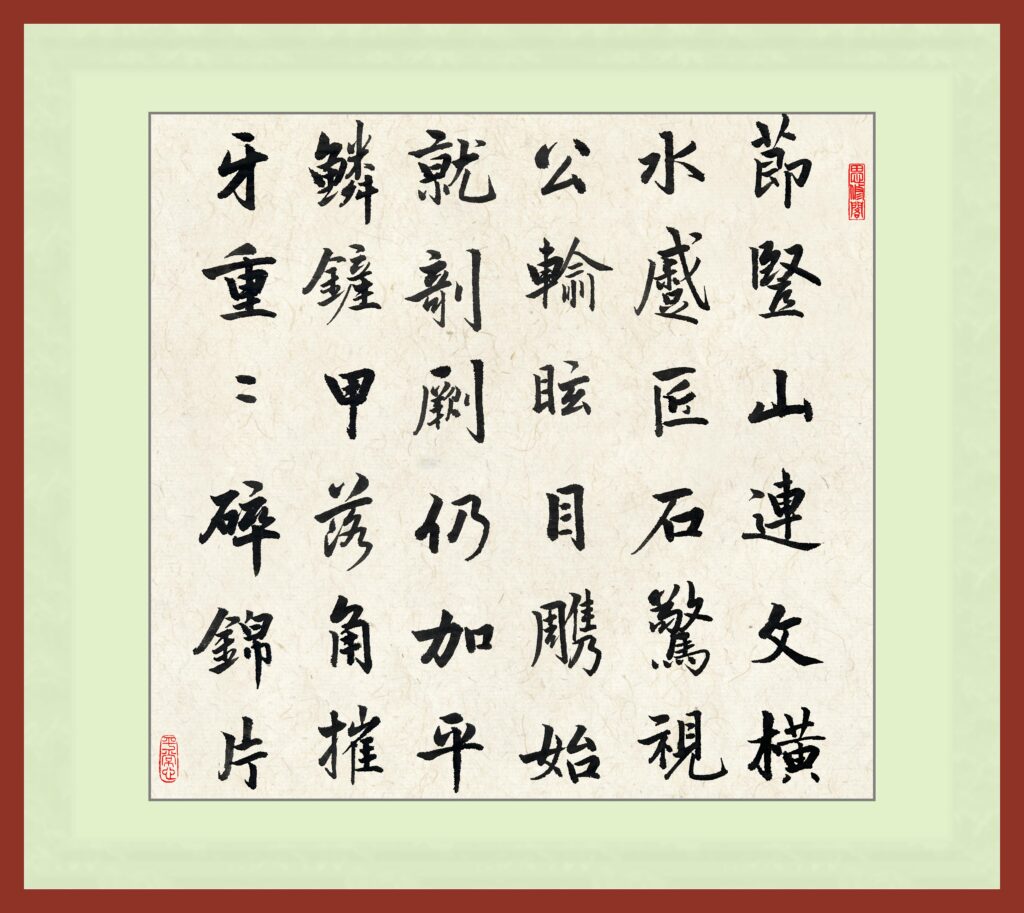 莭豎山連文橫
水蹙匠石驚視
公輸眩目雕始
就剞劂仍加平
鱗鏟甲落角摧
牙重〻碎錦片
平常心